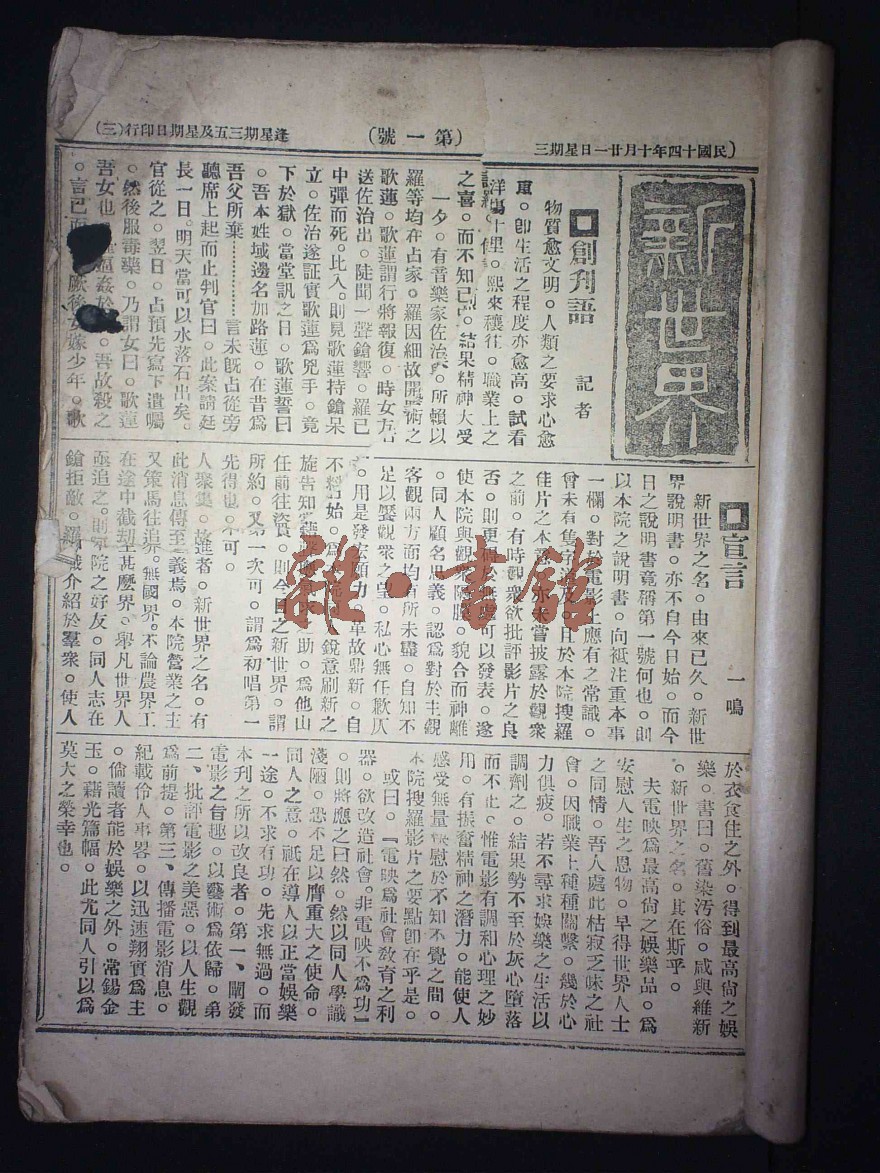 (民國十四年十月廿一日星期三
(第一號)
逢星期三五及星期日印行(三)
新世界
創刊語　記者
物質愈文明。人類之要求心愈
重。卽生活之程度亦愈高。試看
洋場十里。熙來穰往。職業上之
之喜。而不知己 結果精神大受
一夕。有音樂家佐治 所賴以
羅等均在占家。羅因細故開 術之
歌蓮。歌蓮謂行將報復。時女方
送佐治出。陡聞一聲鎗響。羅已
中彈而死。比入。則見歌蓮持鎗呆
立。佐治遂証實歌蓮爲兇手。竟
下於獄。當堂訊之日。歌蓮誓曰
。吾本姓域邊名加路蓮。在昔爲
吾父所棄…………言未旣占從旁
聽席上起而止判官曰。此案請延
長一日。明天當可以水落石出矣。
官從之。翌日。占預先寫下遺囑
。然後服毒藥。乃謂女曰。歌蓮
吾女也 逼姦於 。吾故殺之
。言已而 厥後女嫁少年。歌
宣言　一鳴
新世界之名。由來已久。新世
界說明書。亦不自今日始。而今
日之說明書竟稱第一號何也。則
以本院之說明書。向祗注重本事
一欄。對於電影上應有之常識。
曾未有隻字 且於本院搜羅
佳片之本意。亦未嘗披露於觀衆
之前。有時觀衆欲批評影片之良
否。則更 可以發表。遂
使本院與觀衆隔膜。貌合而神離
。同人顧名思義。認爲對於主觀
客觀兩方面均有所未盡。自知不
足以饜觀衆之望。私心無任歉仄
。用是發宏願力。革故鼎新。自
不 始。爲 銳意刷新之
旋告知 之助。爲他山
任前往咨質。則今日之新世界。謂
所約。又第一次可。謂爲初唱第一
先得也 不可。
人聚集。故進者。新世界之名。有
此消息傳至 義焉。本院營業之主
又策馬往追。界。無國界。不論農界工
在途中截劫 甚麼界。舉凡世界人
亟追之。則本院之好友。同人志在
鎗拒敵。羅 職介紹於羣衆。使人
於衣食住之外。得到最高尙之娛
樂。書曰。舊染汚俗。咸與維新
。新世界之名。其在斯乎。
夫電映爲最高尙之娛樂品。爲
安慰人生之恩物。早得世界人士
之同情。吾人處此枯寂乏味之社
會。因職業上種種關繫。幾於心
力俱疲。若不尋求娛樂之生活以
調劑之。結果勢不至於灰心墮落
而不止。惟電影有調和心理之妙
用。有振奮精神之潛力。能使人
感受無量快慰於不知不覺之間。
本院搜羅影片之要點卽在乎是。
或曰。『電映爲社會敎育之利
器。欲改造社會。非電映不爲功』
。則將應之曰然。然以同人學識
淺陋。恐不足以膺重大之使命。
同人之意。祇在導人以正當娛樂
一途。不求有功。先求無過。而
本刋之所以改良者。第一、闡發
電影之旨趣。以藝術爲依歸。第
二、批評電影之美惡。以人生觀
爲前提。第三、傳播電影消息。
紀載伶人事畧。以迅速翔實爲主
。倘讀者能於娛樂之外。常錫金
玉。藉光篇幅。此尤同人引以爲
莫大之榮幸也。
雜·書館